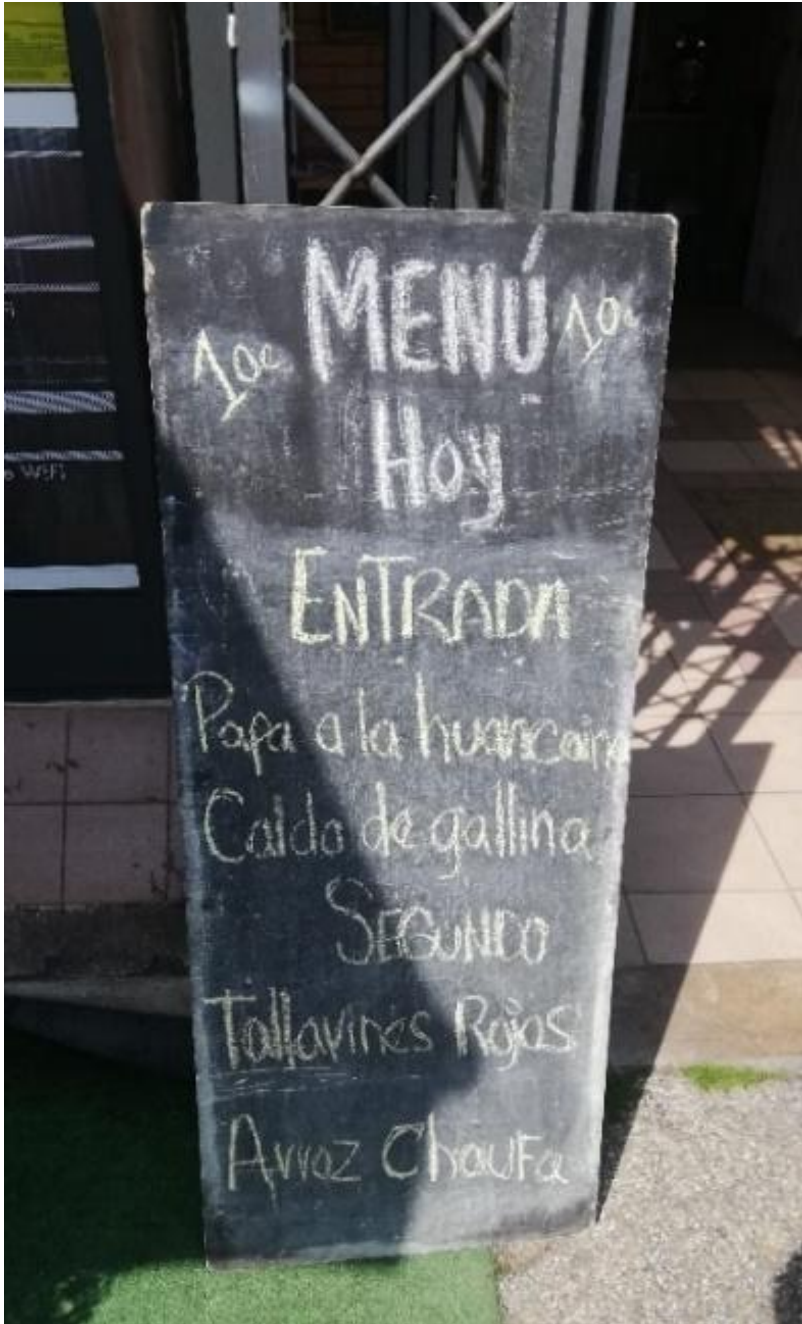 MENÚ
10€ 10€
Hoy
ENTRADA
Papa a la huancaina
Caldo de gallina
SEGUNDO
Tallarines Rojos
Arroz Chaufa
WiFi